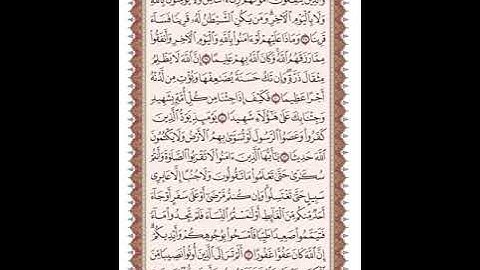 وَالَّذِينَ يُنفِقُونَ أَمْوَالَهُمْ رِئَاءَ النَّاسِ وَلَا يُؤْمِنُونَ بِاللَّهِ
وَلَا بِالْيَوْمِ الْآخِرِ ۗ وَمَن يَكُنِ الشَّيْطَانُ لَهُ قَرِينًا فَسَاءَ
قَرِينًا ۝ وَمَاذَا عَلَيْهِمْ لَوْ آمَنُوا بِاللَّهِ وَالْيَوْمِ الْآخِرِ وَأَنفَقُوا
مِمَّا رَزَقَهُمُ اللَّهُ ۚ وَكَانَ اللَّهُ بِهِمْ عَلِيمًا ۝ إِنَّ اللَّهَ لَا يَظْلِمُ
مِثْقَالَ ذَرَّةٍ ۖ وَإِن تَكُ حَسَنَةً يُضَاعِفْهَا وَيُؤْتِ مِن لَّدُنْهُ
أَجْرًا عَظِيمًا ۝ فَكَيْفَ إِذَا جِئْنَا مِن كُلِّ أُمَّةٍ بِشَهِيدٍ
وَجِئْنَا بِكَ عَلَىٰ هَٰؤُلَاءِ شَهِيدًا ۝ يَوْمَئِذٍ يَوَدُّ الَّذِينَ
كَفَرُوا وَعَصَوُا الرَّسُولَ لَوْ تُسَوَّىٰ بِهِمُ الْأَرْضُ وَلَا يَكْتُمُونَ
اللَّهَ حَدِيثًا ۝ يَا أَيُّهَا الَّذِينَ آمَنُوا لَا تَقْرَبُوا الصَّلَاةَ وَأَنتُمْ
سُكَارَىٰ حَتَّىٰ تَعْلَمُوا مَا تَقُولُونَ وَلَا جُنُبًا إِلَّا عَابِرِي
سَبِيلٍ حَتَّىٰ تَغْتَسِلُوا ۚ وَإِن كُنتُم مَّرْضَىٰ أَوْ عَلَىٰ سَفَرٍ أَوْ جَاءَ
أَحَدٌ مِّنكُم مِّنَ الْغَائِطِ أَوْ لَامَسْتُمُ النِّسَاءَ فَلَمْ تَجِدُوا مَاءً
فَتَيَمَّمُوا صَعِيدًا طَيِّبًا فَامْسَحُوا بِوُجُوهِكُمْ وَأَيْدِيكُمْ ۗ
إِنَّ اللَّهَ كَانَ عَفُوًّا غَفُورًا ۝ أَلَمْ تَرَ إِلَى الَّذِينَ أُوتُوا نَصِيبًا مِّنَ